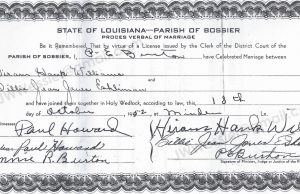 STATE OF LOUISIANA—PARISH OF BOSSIER
PROCES VERBAL OF MARRIAGE
Be it Remembered, That by virtue of a License issued by the Clerk of the District Court of the
PARISH OF BOSSIER, I, P. E. Burton have Celebrated Marriage between
Hiram Hank Williams
Billie Jean Jones Eshliman
and have joined them together in Holy Wedlock, according to law, this 18th
day of October 1952 Minden
Paul Howard Hiram Hank
Paul Howard Billie Jean Jones
P. Burton P. E. Burton
Signature of Minister, Judge or Justice of the